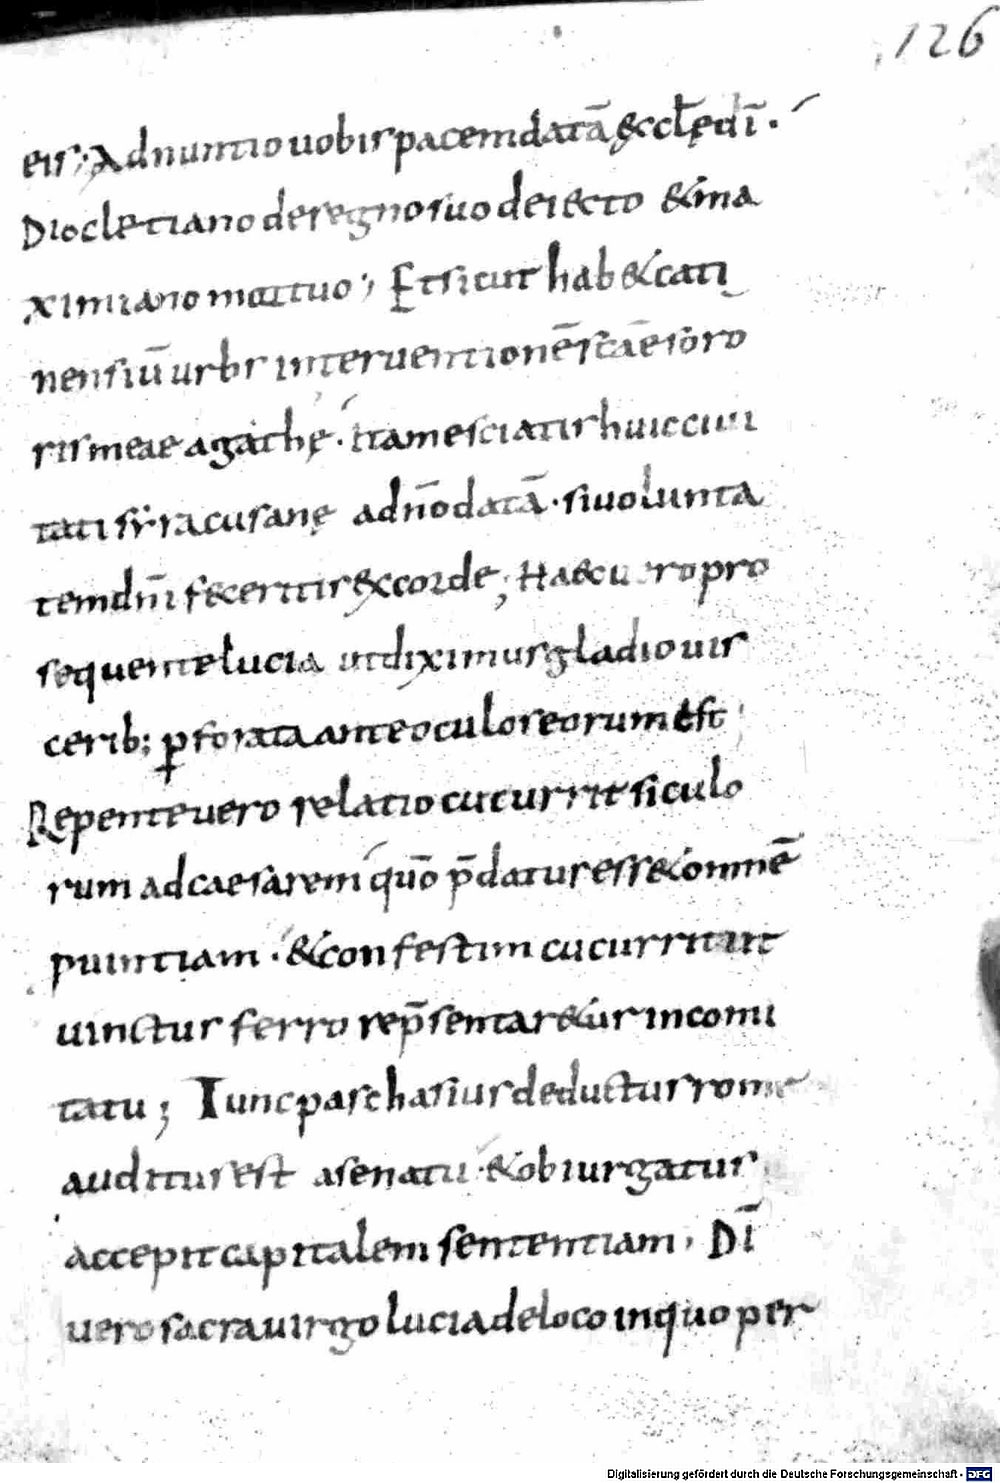 126
eis; Adnuntio uobis pacem datā ęccl̄ę dī.
Diocletiano de regno suo deiecto & ma
ximiano mortuo; Et sicut hab& cati
nensiū urbs interuentionē scāe soro
ris meae agathę. ita mesciatis huic ciui
tati syracusanę adn̄o datā. si uolunta
tem dn̄i feceritis ex corde; Haec uero pro
sequente lucia ut diximus gladio uis
cerib; ꝑforata ante oculos eorum est
Repente uero relatio cucurrit siculo
rum ad caesarem quō p̄datus ess& omnē
puintiam. & confestim cucurrit ut
uinctus ferro rep̄sentar&ur in comi
tatu; Tunc paschasius deductus rome
auditus est a senatu. & obiurgatus
accepit capitalem sententiam. Dī
uero sacra uirgo lucia de loco in quo per
Digitalisierung gefördert durch die Deutsche Forschungsgemeinschaft - DFG